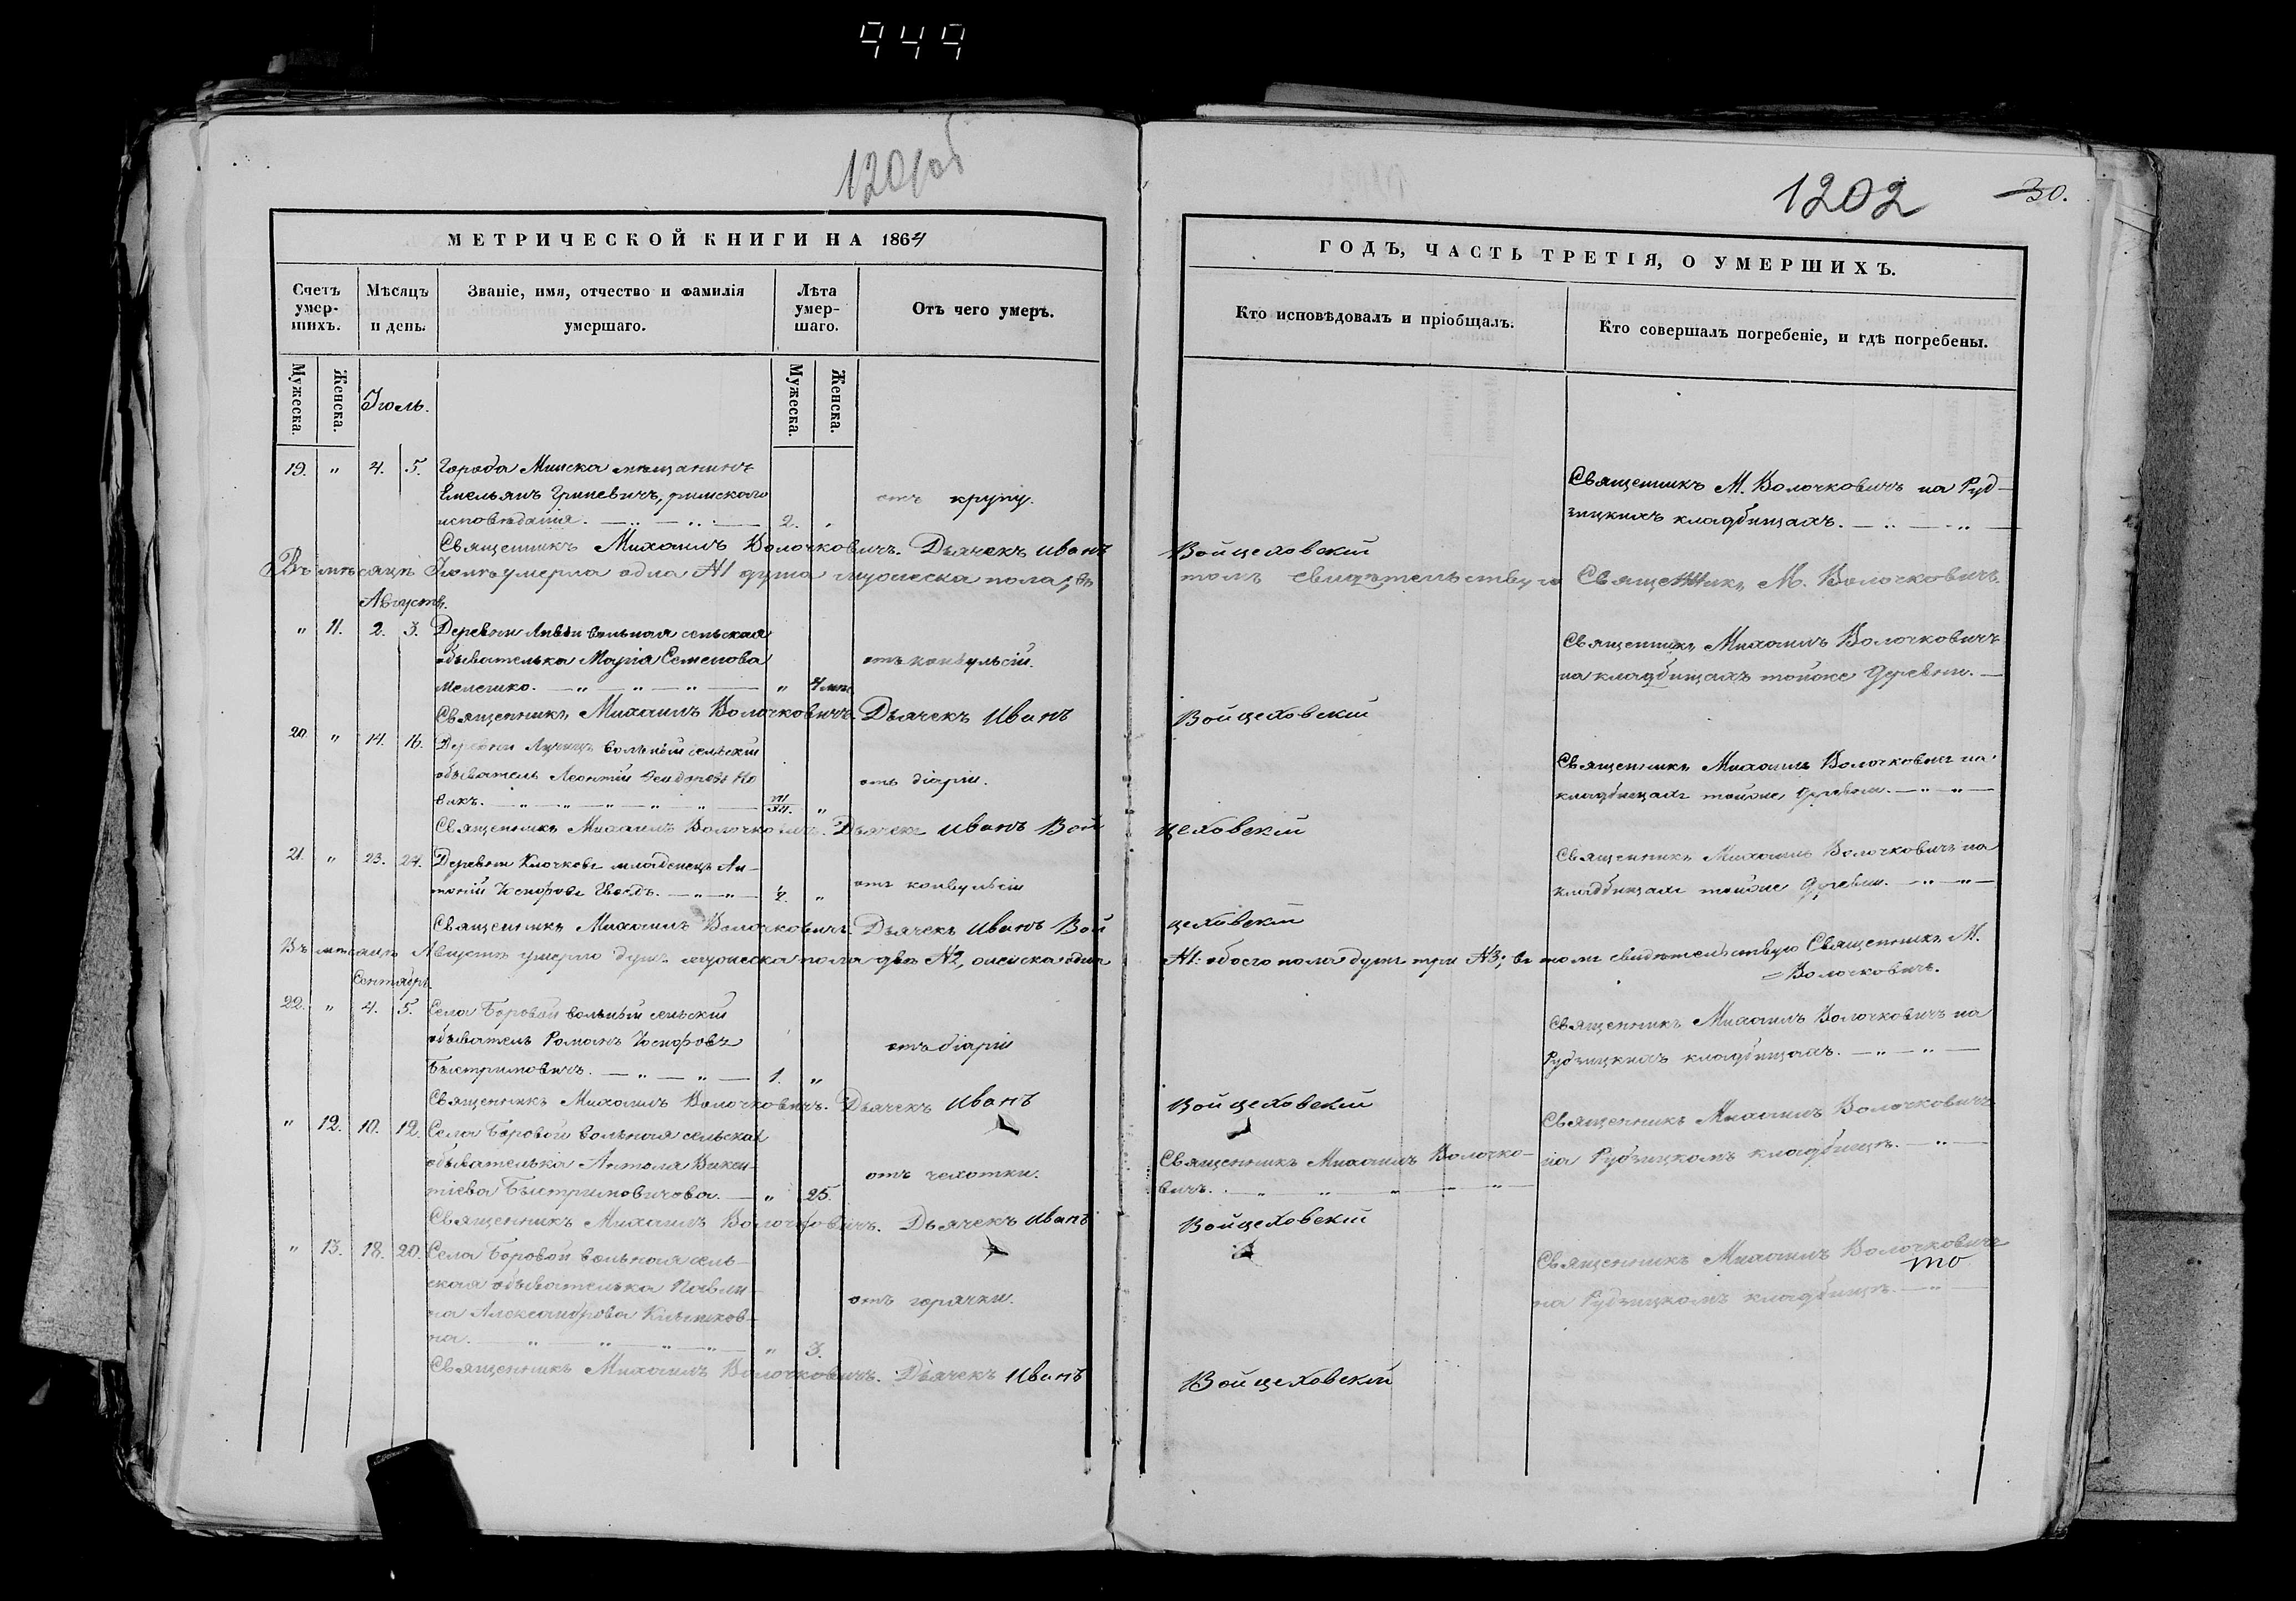 949
1201об
1202
30.
МЕТРИЧЕСКОЙ КНИГИ НА 1864
Счетъ умер-шихъ.
Мѣсяцъ и день.
Званіе, имя, отчество и фамилія умершаго.
Лѣта умер-шаго.
Отъ чего умеръ.
Мужеска.
Женска.
Мужеска.
Женска.
ГОДЪ, ЧАСТЬ ТРЕТІЯ, О УМЕРШИХЪ.
Кто исповѣдовалъ и пріобщалъ.
Кто совершалъ погребеніе, и гдѣ погребены.
Іюль.
19. " 4. 5. Города Минска мѣщанинъ
Емельянъ Гриневичъ, римскаго
исповѣданія. 2. "
отъ крупу.
Священникъ М. Волочковичъ на Руд-
зицкихъ кладбищахъ.
Священникъ Михаилъ Волочковичъ. Дьячекъ Иванъ Войцеховскій
Въ мѣсяцѣ Іюлѣ умерла одна №1 душа мужеска пола; въ томъ свидѣтельствую Священникъ М. Волочковичъ.
Августъ.
" 11. 2. 3. Деревни вольная сельская
обывателька Марія Семенова
Мелешко. " 4 мѣс.
отъ конвульсій.
Священникъ Михаилъ Волочковичъ
на кладбищахъ тойже деревни.
Священникъ Михаилъ Волочковичъ. Дьячекъ Иванъ Войцеховскій
20. " 14. 16. Деревни вольный сельскій
обыватель Леонтій Но
викъ. VII/XII. "
отъ діаріи.
Священникъ Михаилъ Волочковичъ на
кладбищахъ тойже деревни.
Священникъ Михаилъ Волочковичъ. Дьячекъ Иванъ Войцеховскій
21. " 23. 24. Деревни Клочкова младенецъ Ан-
тоній Іосифовъ Гвоздь. "
отъ конвульсіи
Священникъ Михаилъ Волочковичъ на
кладбищахъ тойже деревни.
Священникъ Михаилъ Волочковичъ. Дьячекъ Иванъ Войцеховскій
Въ мѣсяцѣ Августѣ умерло душъ мужеска пола двѣ №2, женска одна №1: обоего пола душъ три №3; въ томъ свидѣтельствую Священникъ М.
Волочковичъ.
Сентябрь.
22. " 4. 5. Села Боровой вольный сельскій
обыватель Романъ Іосифовъ
Быстримовичъ. 1. "
отъ діаріи
Священникъ Михаилъ Волочковичъ на
Рудзицкихъ кладбищахъ.
Священникъ Михаилъ Волочковичъ. Дьячекъ Иванъ Войцеховскій
" 12. 10. 12. Села Боровой вольная сельская
обывателька Антоля Викен-
тіева Быстримовичова. " 25.
отъ чехотки.
Священникъ Михаилъ Волочко-
вичъ.
Священникъ Михаилъ Волочковичъ
на Рудзицкомъ кладбищѣ.
Священникъ Михаилъ Волочковичъ. Дьячекъ Иванъ Войцеховскій
" 13. 18. 20. Села Боровой вольная сель-
ская обывателька Павли-
на Александрова
на. " 3.
отъ горячки.
Священникъ Михаилъ Волочковичъ
то
на Рудзицкомъ кладбищѣ.
Священникъ Михаилъ Волочковичъ. Дьячекъ Иванъ Войцеховскій